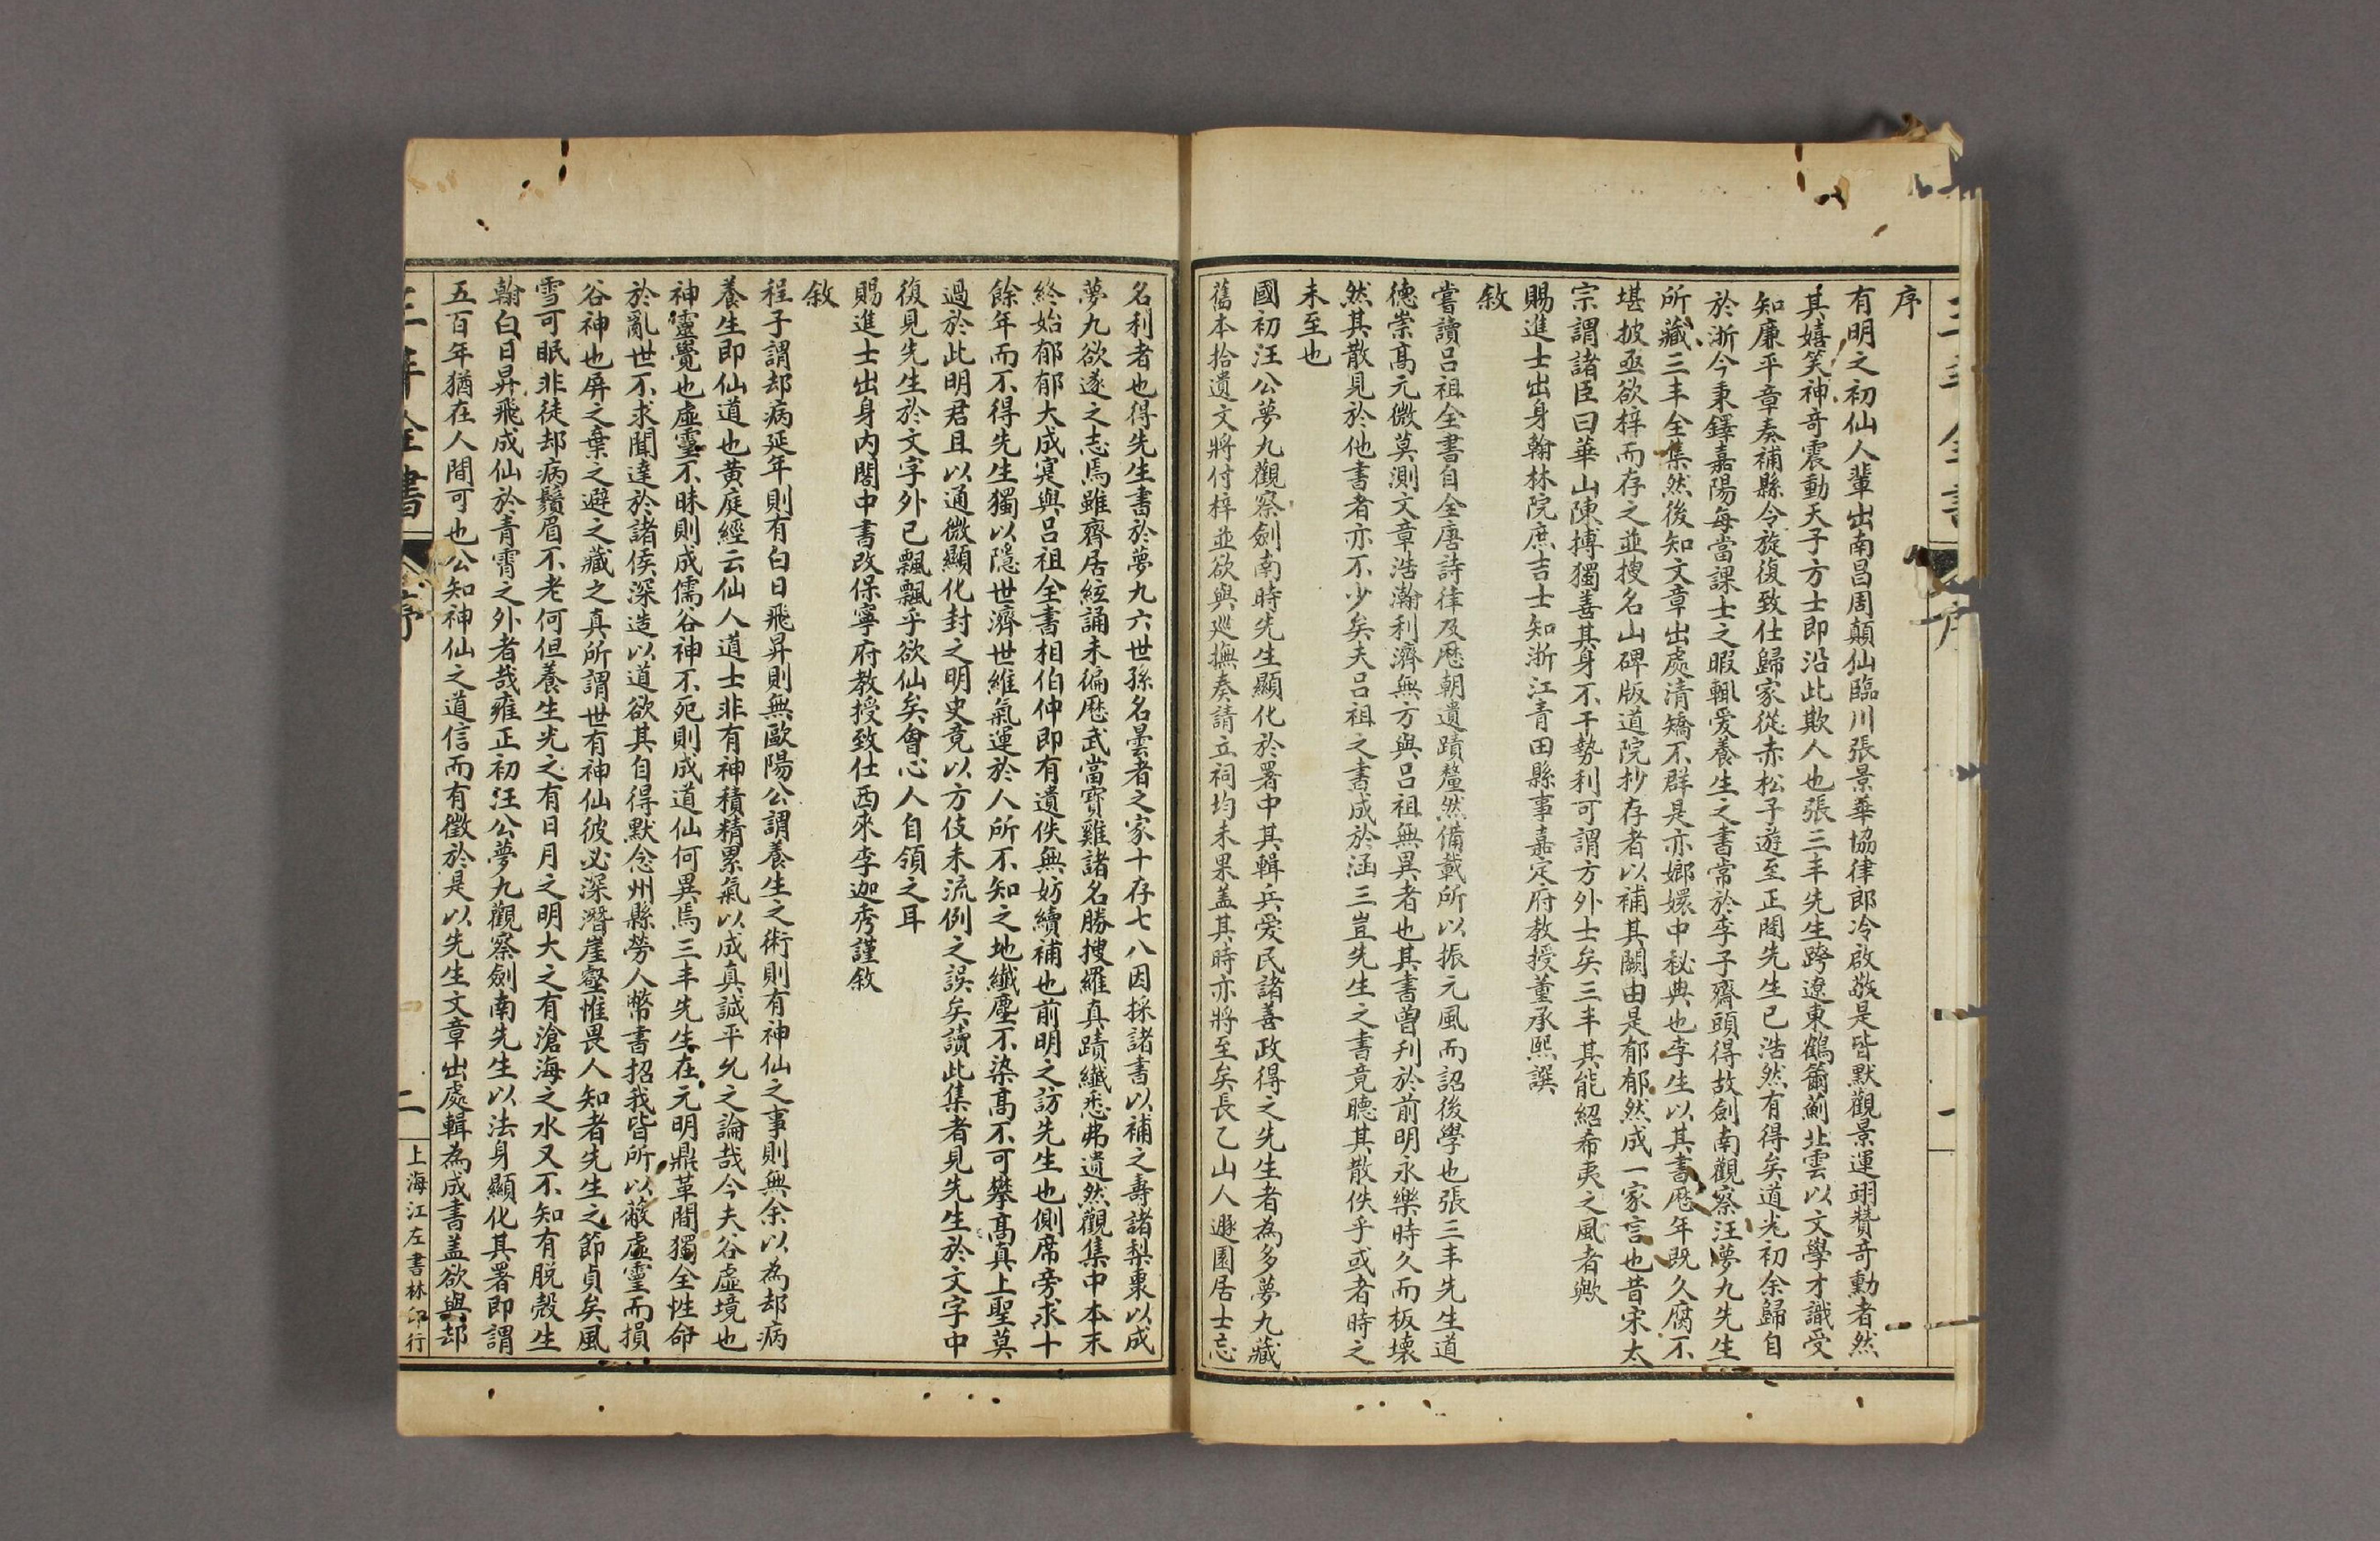 序
有明之初仙人輩出南昌周顛仙臨川張景華協律郎冷啟敬是皆默觀景運翊贊奇勳者然
其嬉笑神奇震動天子方士即沿此欺人也張三丰先生跨遼東鶴籋薊北雲以文學才識受
知廉平章奏補縣令旋復致仕歸家從赤松子遊至正間先生已浩然有得矣道光初余歸自
於浙今秉鐸嘉陽每當課士之暇輒爱養生之書常於李子齋頭得故劍南觀察汪夢九先生
所藏三丰全集然後知文章出處清矯不群是亦嫏嬛中秘典也李生以其書歷年既久腐不
堪披亟欲梓而存之並搜名山碑版道院抄存者以補其闕由是郁郁然成一家言也昔宋太
宗謂諸臣曰華山陳搏獨善其身不干勢利可謂方外士矣三丰其能紹希夷之風者歟
賜進士出身翰林院庶吉士知浙江青田縣事嘉定府教授董承熙譔
敘
嘗讀呂祖全書自全唐詩律及歷朝遺蹟釐然備載所以振元風而詔後學也張三丰先生道
德崇高元微莫測文章浩瀚利濟無方與呂祖無異者也其書曾刋於前明永樂時久而板壞
然其散見於他書者亦不少矣夫呂祖之書成於涵三豈先生之書竟聽其散佚乎或者時之
未至也
國初汪公夢九觀察劍南時先生顯化於署中其輯兵爱民諸善政得之先生者為多夢九藏
舊本拾遺文將付梓並欲與廵撫奏請立祠均未果盖其時亦將至矣長乙山人遯園居士忘
名利者也得先生書於夢九六世孫名曇者之家十存七八因採諸書以補之壽諸梨棗以成
夢九欲遂之志焉雖齋居絃誦未徧歷武當寶雞諸名勝搜羅真蹟纖悉弗遺然觀集中本末
終始郁郁大成寔與呂祖全書相伯仲即有遺佚無妨續補也前明之訪先生也側席旁求十
餘年而不得先生獨以隱世濟世維氣運於人所不知之地纖塵不染高不可攀高真上聖莫
過於此明君且以通微顯化封之明史竟以方伎末流例之誤矣讀此集者見先生於文字中
復見先生於文字外已飄飄乎欲仙矣會心人自領之耳
賜進士出身内閣中書改保寧府教授致仕西來李迦秀謹敘
敘
程子謂却病延年則有白日飛昇則無歐陽公謂養生之術則有神仙之事則無余以為却病
養生即仙道也黄庭經云仙人道士非有神積精累氣以成真誠平允之論哉今夫谷虛境也
神靈覺也虛靈不昧則成儒谷神不死則成道仙何異焉三丰先生在元明鼎革間獨全性命
於亂世不求聞達於諸侯深造以道欲其自得默念州縣勞人幣書招我皆所以蔽虛靈而損
谷神也屏之棄之避之藏之真所謂世有神仙彼必深潛崖壑惟畏人知者先生之節貞矣風
雪可眠非徒却病鬚眉不老何但養生光之有日月之明大之有滄海之水又不知有脱殼生
翰白日昇飛成仙於青霄之外者哉雍正初汪公夢九觀察劍南先生以法身顯化其署即謂
五百年猶在人間可也公知神仙之道信而有徵於是以先生文章出處輯為成書盖欲與却
三丰全書
序
二
上海江左書林印行